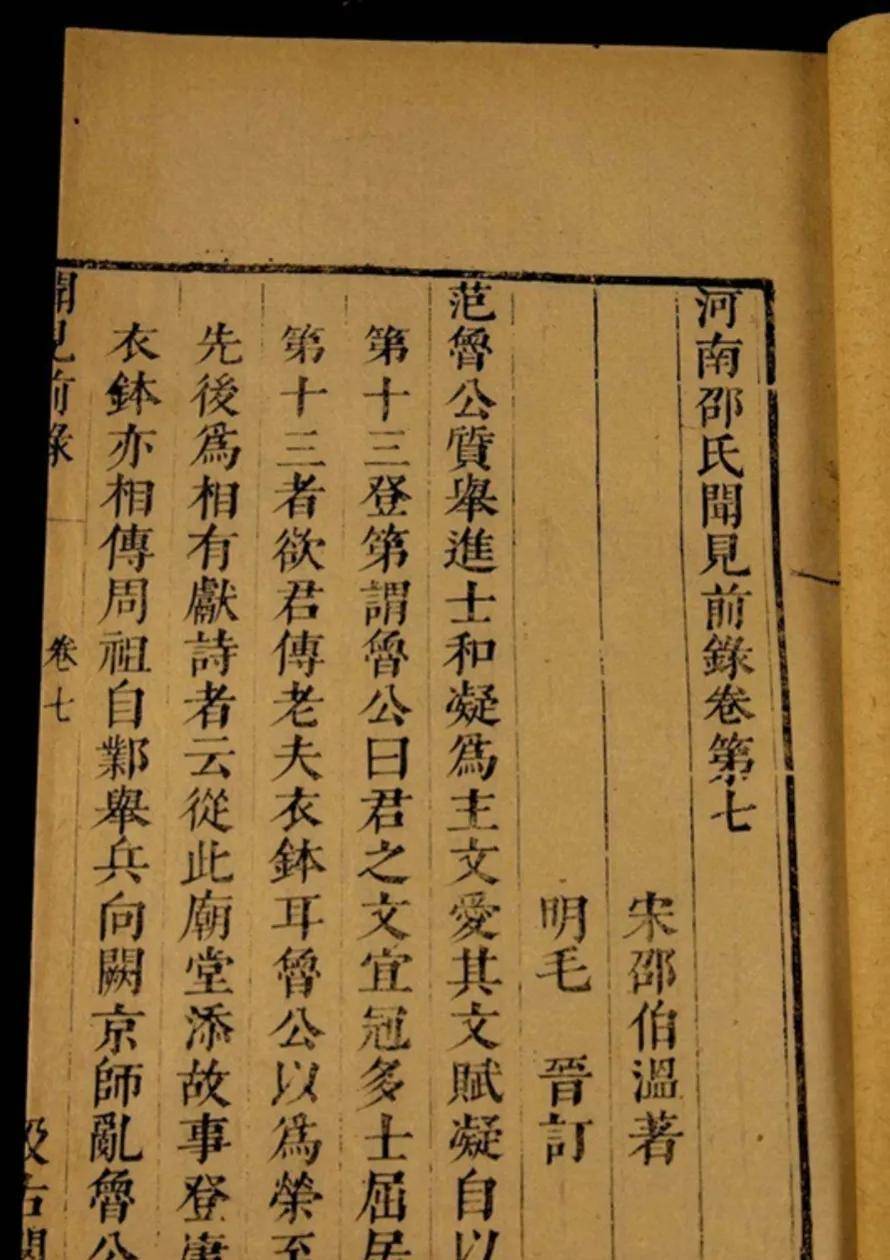 河南邵氏聞見前錄卷第七
宋邵伯溫著
明毛晉訂
范魯公質舉進士和凝爲主文愛其文賦凝自以
第十三登第謂魯公曰君之文宜冠多士屈居
第十三者欲君傳老夫衣鉢耳魯公以爲榮至
先後爲相有獻詩者云從此廟堂添故事登庸
衣鉢亦相傳周祖自鄴舉兵向闕京師亂魯公
聞見前錄 卷七 汲古閣